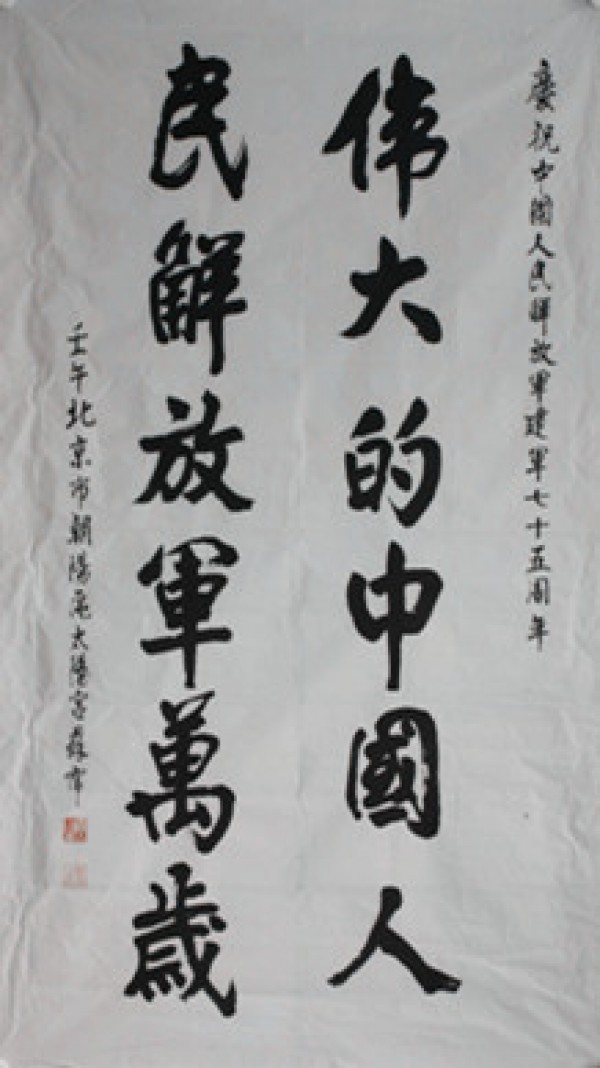 慶祝中國人民解放軍建軍七十五周年
伟大的中國人
民解放軍萬歲
壬午北京市朝陽區太陽宮蘇